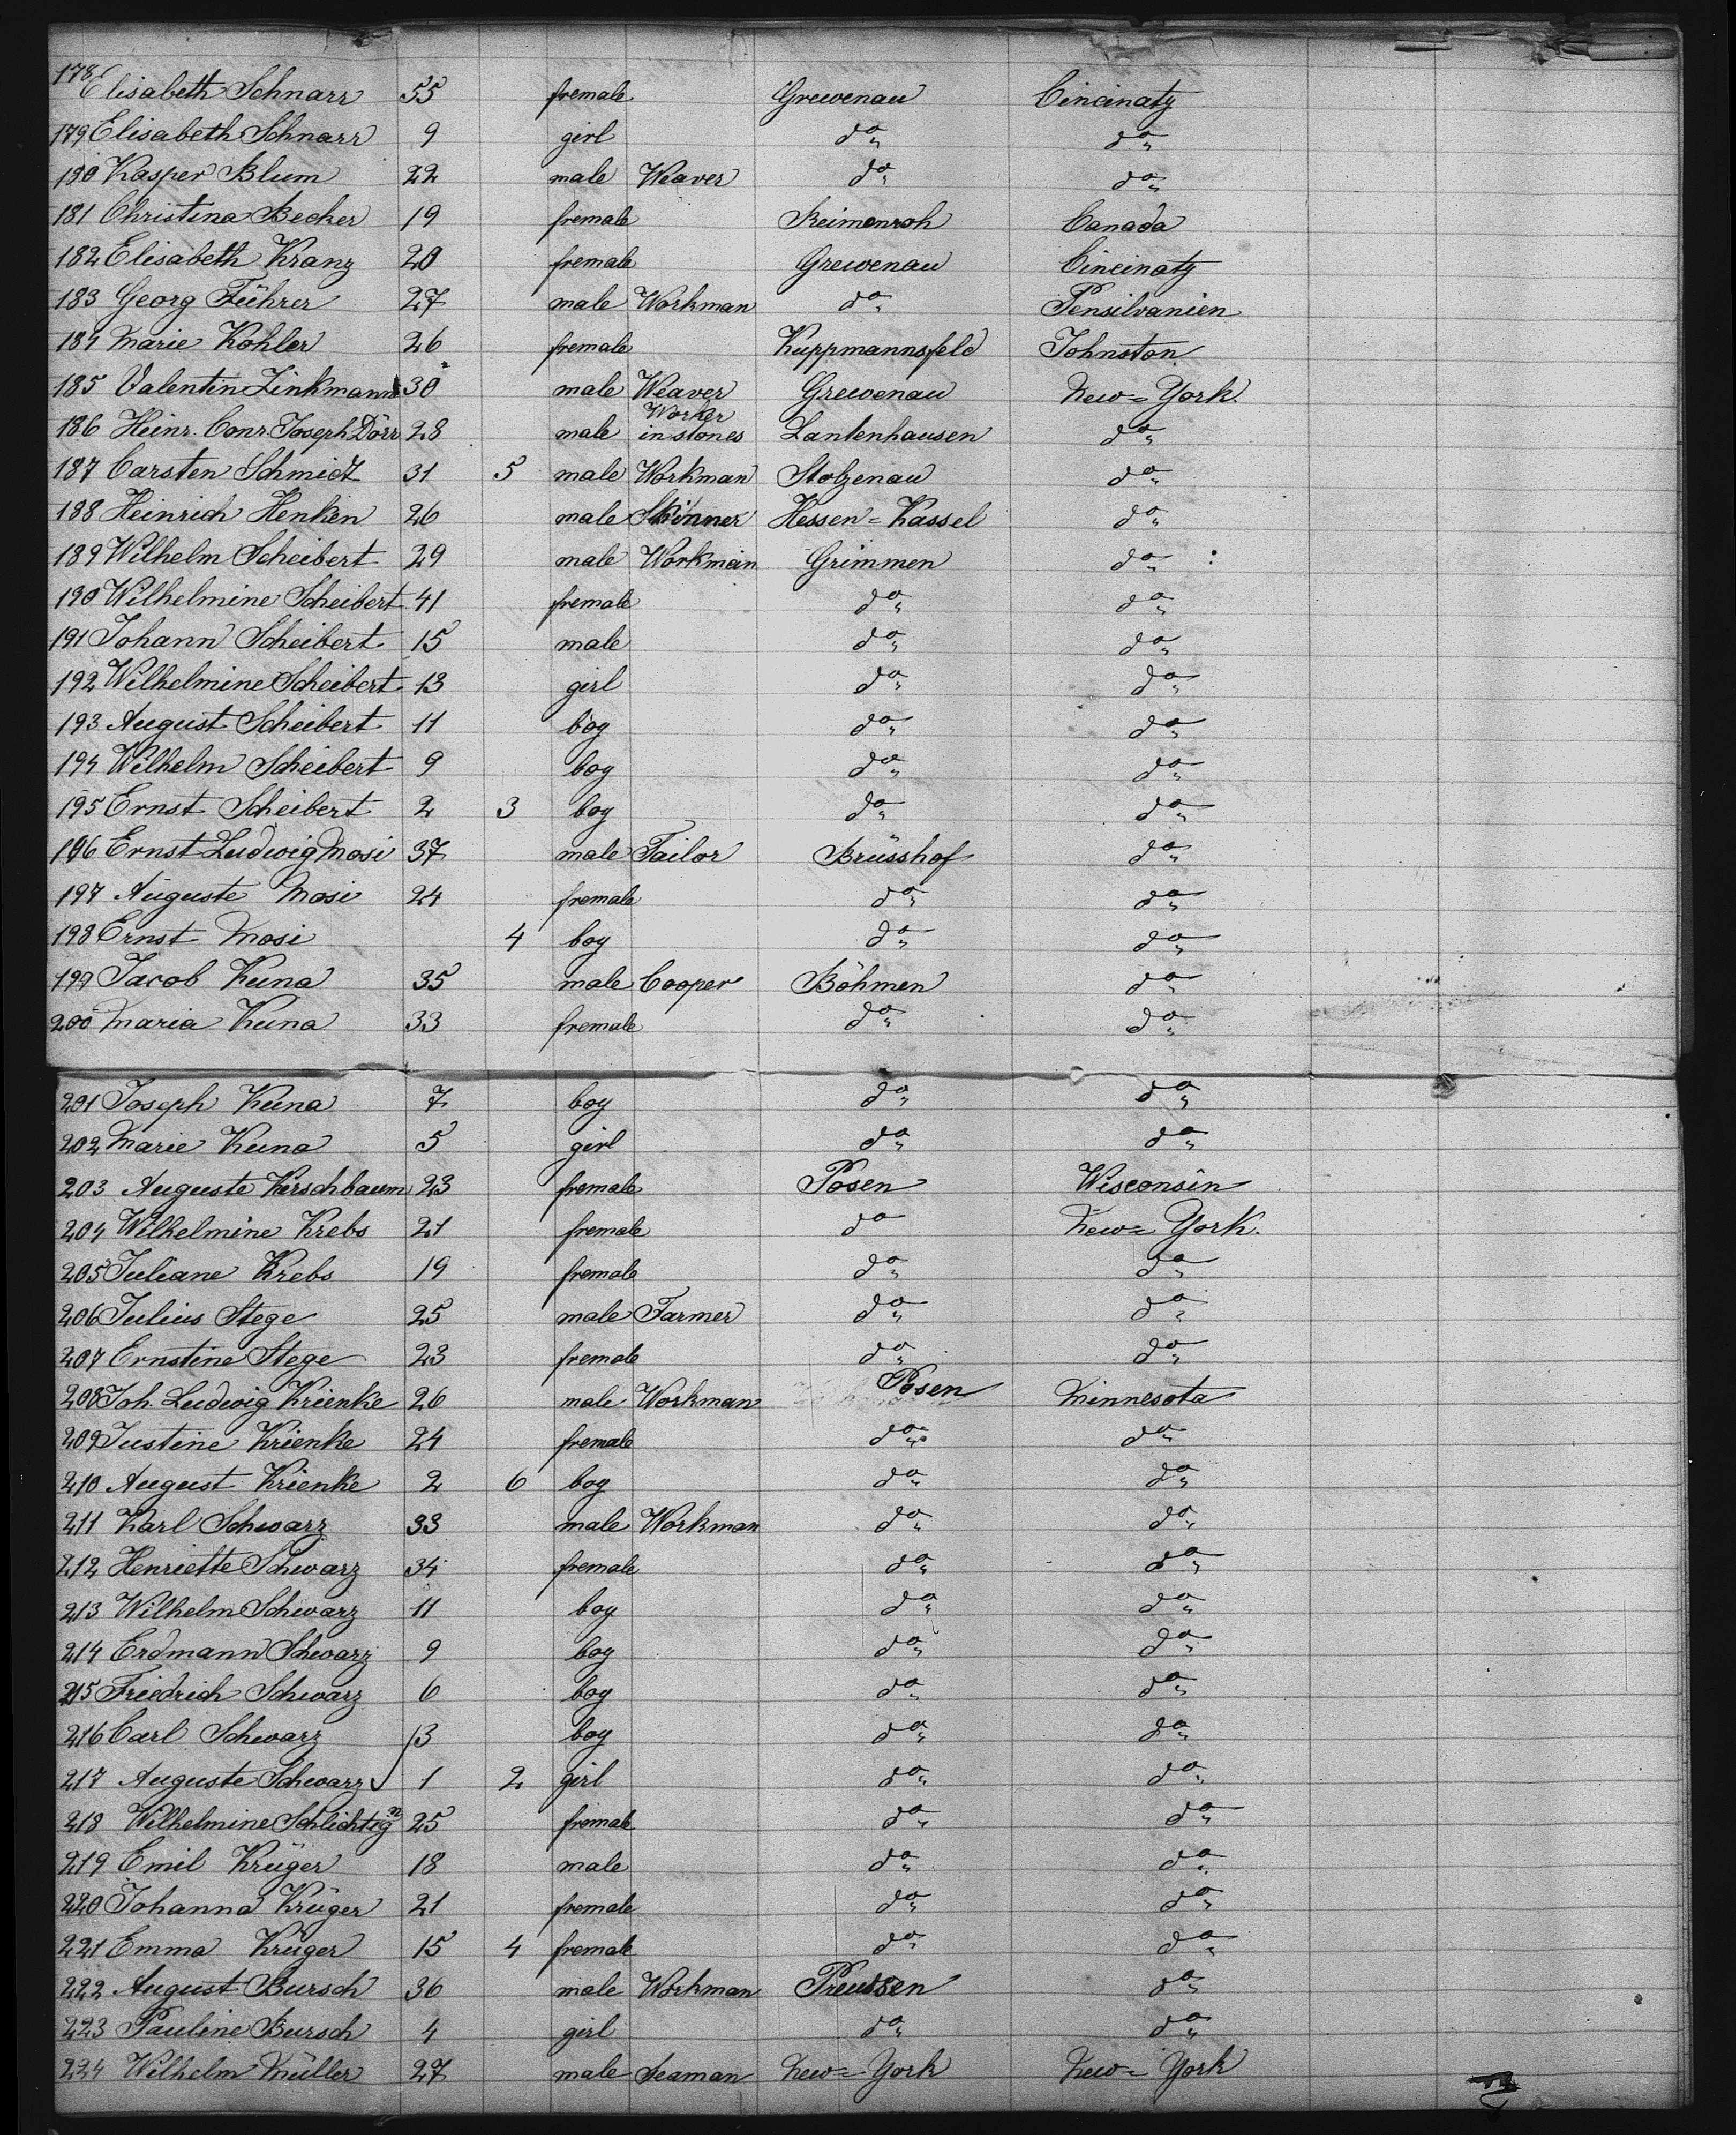 178 Elisabeth Schnarr 55 fremale Grewenau Cincinaty
179 Elisabeth Schnarr 9 girl do " do "
180 Kasper Blum 22 male Weaver do " do "
181 Christina Becher 19 fremale Reimenroh Canada
182 Elisabeth Kranz 20 fremale Grewenau Cincinaty
183 Georg Führer 27 male Workman do " Pensilvanien
184 Marie Kohler 26 fremale Kuppmannsfeld Johnston
185 Valentin Zinkmann 30 male Weaver Grewenau New=York.
186 Heinr. Conr. Joseph Dörr 28 male Worker in stones Lantenhausen do "
187 Carsten Schmidt 31 5 male Workman Stolzenau do "
188 Heinrich Henken 26 male Skinner Hessen=Kassel do "
189 Wilhelm Scheibert 29 male Workman Grimmen do "
190 Wilhelmine Scheibert 41 fremale do " do "
191 Johann Scheibert 15 male do " do "
192 Wilhelmine Scheibert 13 girl do " do "
193 August Scheibert 11 boy do " do "
194 Wilhelm Scheibert 9 boy do " do "
195 Ernst Scheibert 2 3 boy do " do "
196 Ernst Ludwig Mosi 37 male Tailor Brüsshof do "
197 Auguste Mosi 24 fremale do " do "
198 Ernst Mosi 4 boy do " do "
199 Jacob Kuna 35 male Cooper Böhmen do "
200 Maria Kuna 33 fremale do " do "
201 Joseph Kuna 7 boy do " do "
202 Marie Kuna 5 girl do " do "
203 Auguste Kirschbaum 23 fremale Posen Wisconsin
204 Wilhelmine Krebs 21 fremale do New=York.
205 Juliane Krebs 19 fremale do " do "
206 Julius Stege 25 male Farmer do " do "
207 Ernstine Stege 23 fremale do " do "
208 Joh. Ludwig Krienke 26 male Workman Posen Minnesota
209 Justine Krienke 24 fremale do " do "
210 August Krienke 2 6 boy do " do "
211 Karl Schwarz 33 male Workman do " do "
212 Henriette Schwarz 34 fremale do " do "
213 Wilhelm Schwarz 11 boy do " do "
214 Erdmann Schwarz 9 boy do " do "
215 Friedrich Schwarz 6 boy do " do "
216 Carl Schwarz 3 boy do " do "
217 Auguste Schwarz 1 2 girl do " do "
218 Wilhelmine Schlichting 25 fremale do " do "
219 Emil Krüger 18 male do " do "
220 Johanna Krüger 21 fremale do " do "
221 Emma Krüger 15 4 fremale do " do "
222 August Bursch 36 male Workman Preussen do "
223 Pauline Bursch 4 girl do " do "
224 Wilhelm Müller 27 male Seaman New=York New=York